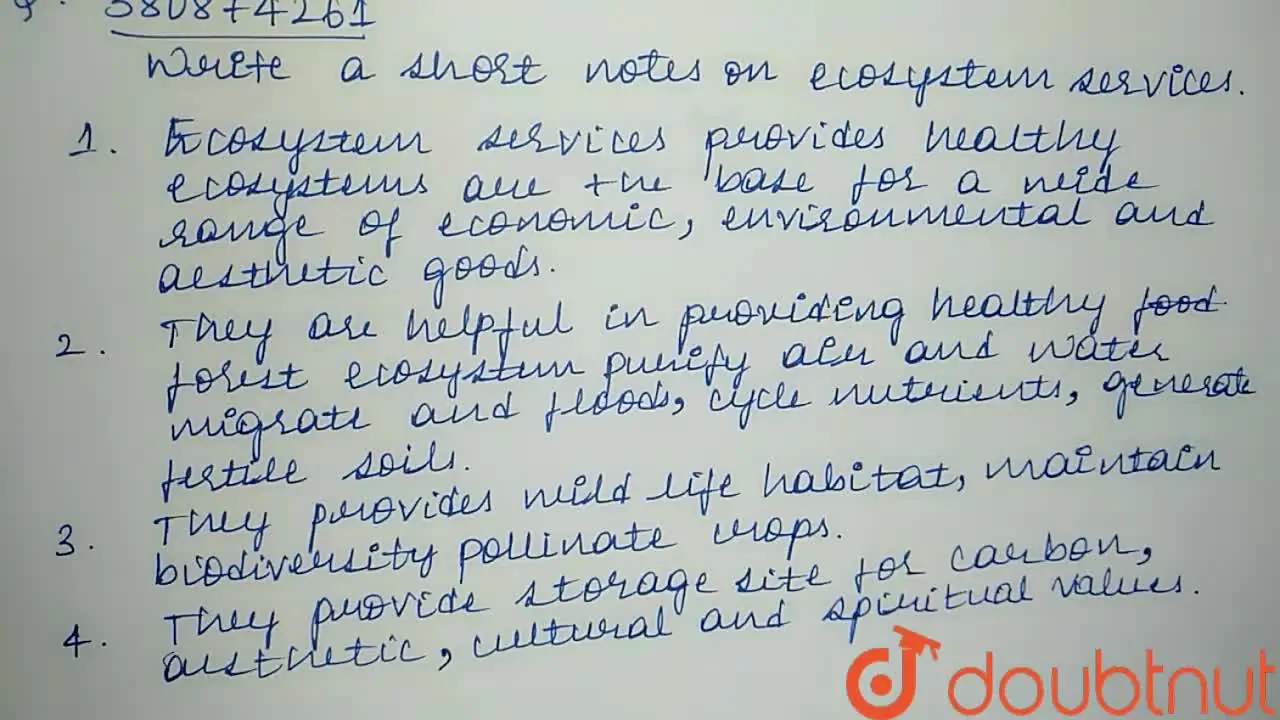 380874261
Write a short notes on ecosystem services.
1. Ecosystem services provides healthy
ecosystems are the base for a wide
range of economic, environmental and
aesthetic goods.
2. They are helpful in providing healthy food
forest ecosystem purify air and water
migrate and floods, cycle nutrients, generate
fertile soils.
3. They provides wild life habitat, maintain
biodiversity pollinate crops.
4. They provide storage site for carbon,
aesthetic, cultural and spiritual values.
doubtnut